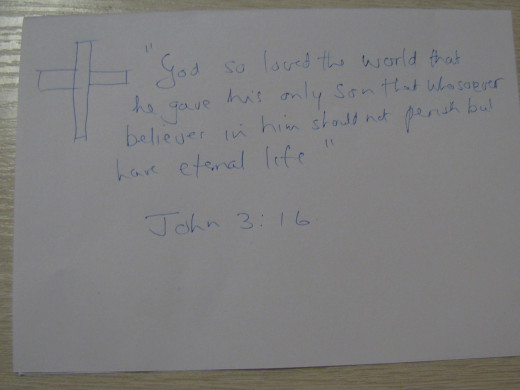 "God so loved the world that
he gave his only son that whosoever
believes in him should not perish but
have eternal life"
John 3:16.